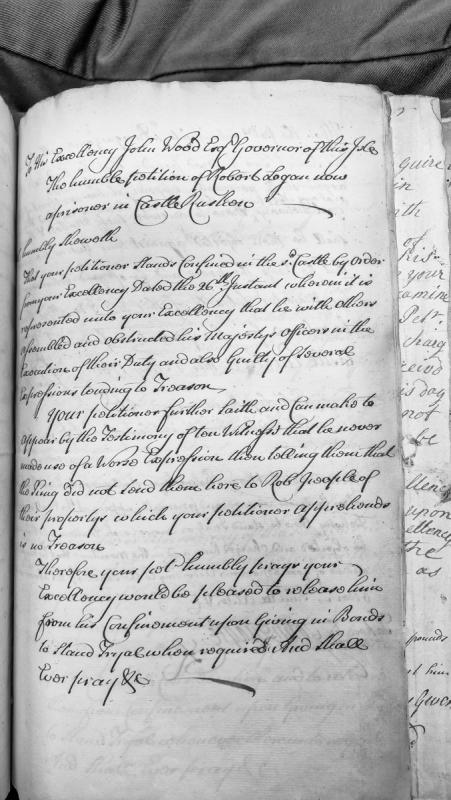 To His Excellency John Wood Esqr. Governor of this Isle
The humble petition of Robert Logan now
a prisoner in Castle Rushen
humbly Sheweth
That your petitioner Stands Confined in the sd. Castle by Order
from your Excellency Dated the 26th. Instant wherein it is
represented unto your Excellency that he with others
assembled and obstructed his Majestys officers in the
Execution of their Duty and also Guilty of Several
Expressions tending to Treason
Your petitioner further Saith and Can make to
appear by the Testimony of ten Witness's that he never
made use of a Worse Expression then telling them that
the King did not send them here to Rob people of
their propertys which your petitioner apprehends
is no Treason
Therefore your petr. humbly prays your
Excellency would be pleased to release him
from his Confinement upon Giving in Bonds
to Stand Tryal when required And Shall
Ever pray &c
quire
in
ith
of
his
your
amine
Petr.
Charg
is day
not
be
upon
ellency
the
as
pounds
him
Gover